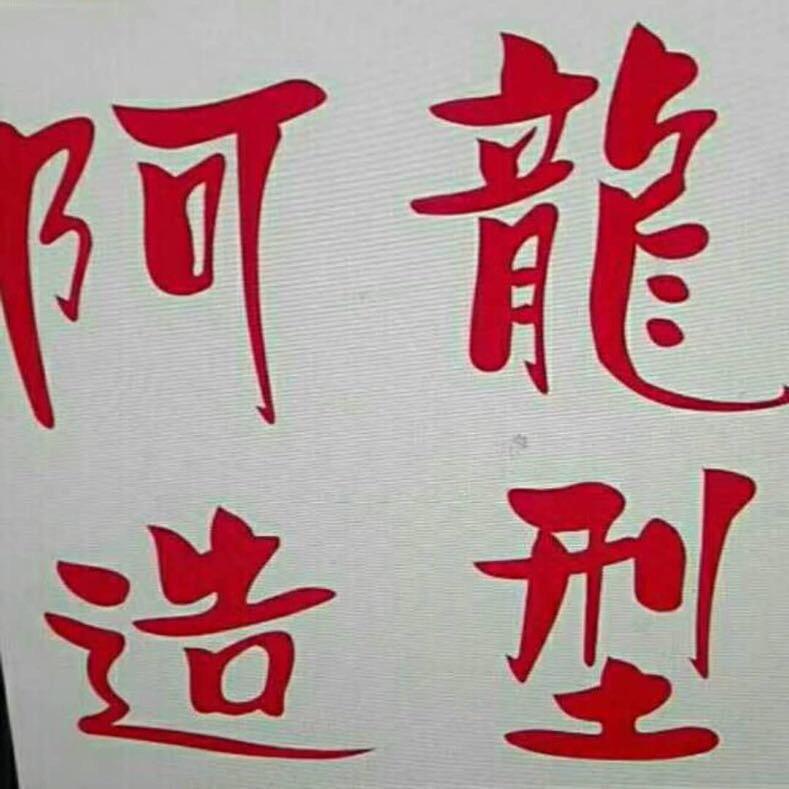 阿龍
造型